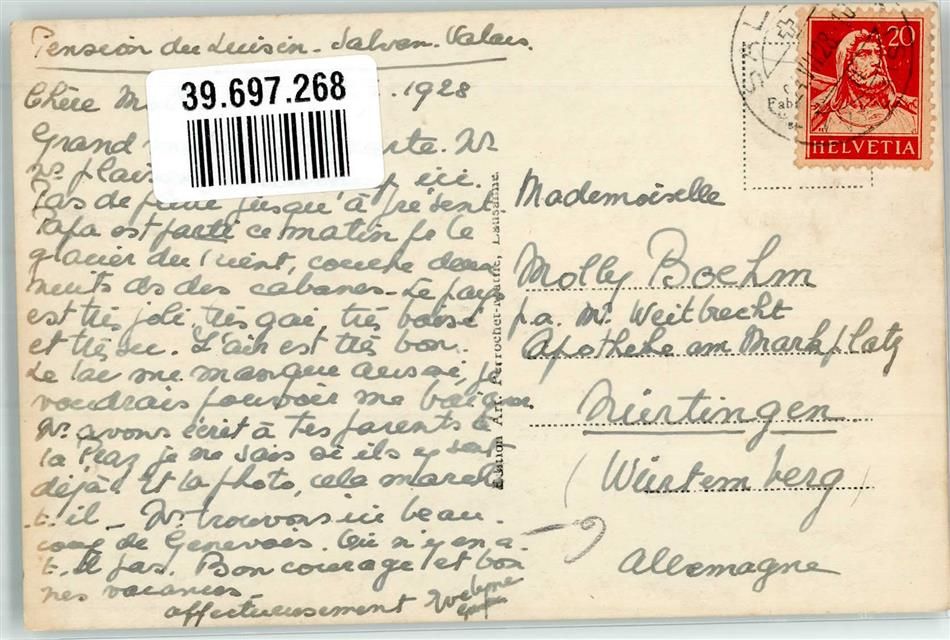 Pension du Luisin - Salvan. Valais.
39.697.268
Chère M 1928
Grand arte. Ns
ns plais ici.
Pas de pluie jusqu'à présent
Papa est parti ce matin pr le
glacier du Trient, couche deux
nuits ds des cabanes - Le pays
est très joli, très gai, très boisé
et très sec. L'air est très bon.
Le lac me manque aussi, je
voudrais pouvoir me baigner.
Ns avons écrit à tes parents à
la Praz je ne sais si ils y sont
déjà. Et la photo, cela marche
-t-il - Ns trouvons ici beau-
coup de Genevois. Où n'y en a-
t-il pas. Bon courage et bon
nes vacances
affectueusement
Edition Art. Perrochet-Matile, Lausanne.
20
HELVETIA
Mademoiselle
Molly Boehm
p.a. Mr. Weitbrecht
Apotheke am Markplatz
Nürtingen
(Würtemberg)
Allemagne